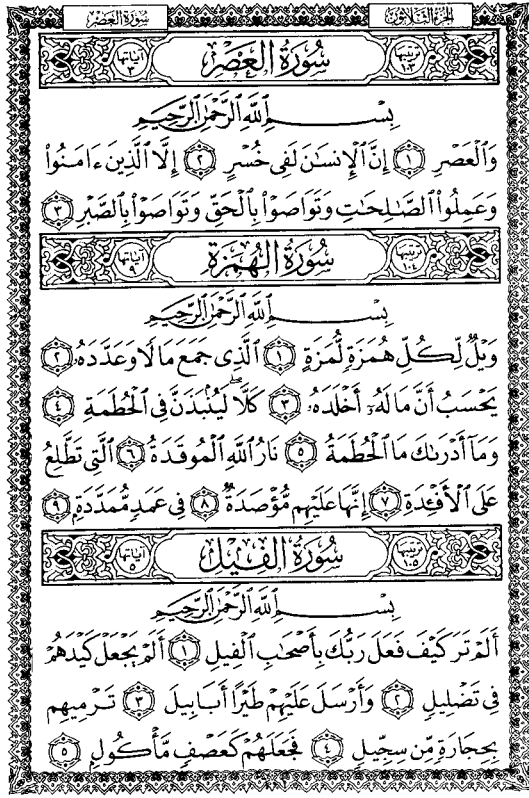 الجزء الثلاثون
سورة العصر
ترتيبها ١٠٣
سُورَةُ العَصْرِ
آياتها ٣
بِسْمِ ٱللَّهِ ٱلرَّحْمَٰنِ ٱلرَّحِيمِ
وَٱلْعَصْرِ ١ إِنَّ ٱلْإِنسَٰنَ لَفِى خُسْرٍ ٢ إِلَّا ٱلَّذِينَ ءَامَنُوا۟
وَعَمِلُوا۟ ٱلصَّٰلِحَٰتِ وَتَوَاصَوْا۟ بِٱلْحَقِّ وَتَوَاصَوْا۟ بِٱلصَّبْرِ ٣
ترتيبها ١٠٤
سُورَةُ الهُمَزَةِ
آياتها ٩
بِسْمِ ٱللَّهِ ٱلرَّحْمَٰنِ ٱلرَّحِيمِ
وَيْلٌ لِّكُلِّ هُمَزَةٍ لُّمَزَةٍ ١ ٱلَّذِى جَمَعَ مَالًا وَعَدَّدَهُۥ ٢
يَحْسَبُ أَنَّ مَالَهُۥٓ أَخْلَدَهُۥ ٣ كَلَّا ۖ لَيُنۢبَذَنَّ فِى ٱلْحُطَمَةِ ٤
وَمَآ أَدْرَىٰكَ مَا ٱلْحُطَمَةُ ٥ نَارُ ٱللَّهِ ٱلْمُوقَدَةُ ٦ ٱلَّتِى تَطَّلِعُ
عَلَى ٱلْأَفْـِٔدَةِ ٧ إِنَّهَا عَلَيْهِم مُّؤْصَدَةٌ ٨ فِى عَمَدٍ مُّمَدَّدَةٍۭ ٩
ترتيبها ١٠٥
سُورَةُ الفِيلِ
آياتها ٥
بِسْمِ ٱللَّهِ ٱلرَّحْمَٰنِ ٱلرَّحِيمِ
أَلَمْ تَرَ كَيْفَ فَعَلَ رَبُّكَ بِأَصْحَٰبِ ٱلْفِيلِ ١ أَلَمْ يَجْعَلْ كَيْدَهُمْ
فِى تَضْلِيلٍ ٢ وَأَرْسَلَ عَلَيْهِمْ طَيْرًا أَبَابِيلَ ٣ تَرْمِيهِم
بِحِجَارَةٍ مِّن سِجِّيلٍ ٤ فَجَعَلَهُمْ كَعَصْفٍ مَّأْكُولٍۭ ٥